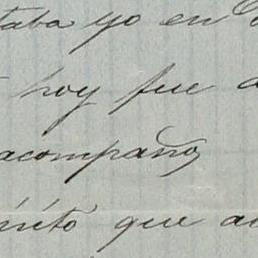 taba yo en
hoy fue a
acompaño,
que a